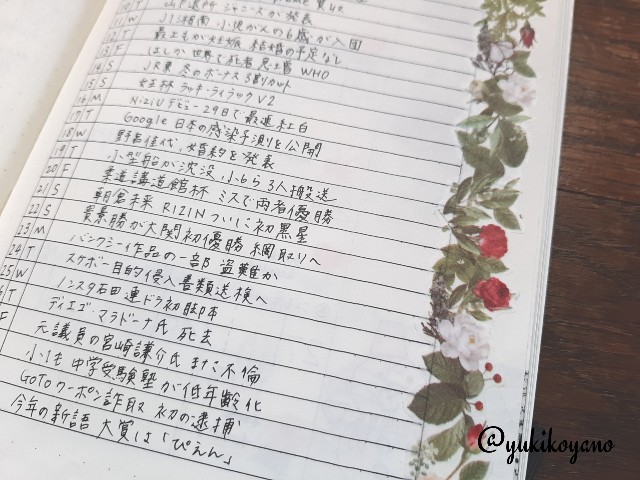 10 T 山P退所 ジャニーズが発表
11 W J1湘南 小児がんの6歳が入団
12 T 最上もが妊娠 結婚の予定なし
13 F はしか 世界で死者 見増 WHO
14 S JR東 冬のボーナス 3割カット
15 S 女王杯 ラッキーライラックV2
16 M NiziU デビュー29日で最速紅白
17 T Google 日本の感染予測を公開
18 W 野呂佳代、婚約を発表
19 T 小型船が沈没 小6ら3人搬送
20 F 柔道講道館杯 ミスで両者優勝
21 S 朝倉未来 RIZIN ついに初黒星
22 S 貴景勝が大関初優勝 綱取りへ
23 M バンクシー作品の一部 盗難か
24 T スケボー目的侵入 書類送検へ
25 W ノンスタ石田 連ドラ初脚本
T ディエゴ・マラドーナ氏 死去
F 元議員の宮崎謙介氏 また不倫
小も 中学受験塾が低年齢化
GoToクーポン詐取 初の逮捕
今年の新語 大賞は「ぴえん」
@yukikoyano